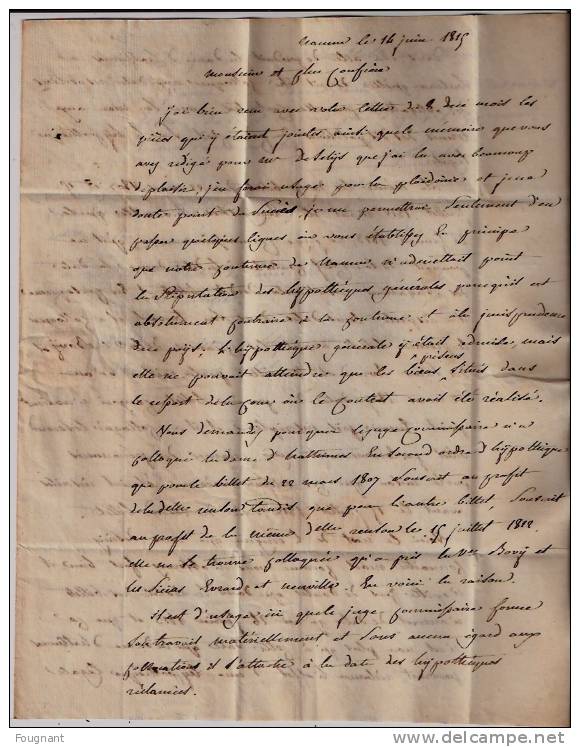 Namur le 14 juin 1815
Monsieur et plus Confrère
j'ai bien reçu avec votre lettre du 8 de ce mois les
pièces qui y étaient jointes ainsi que le memoire que vous
avez redigé pour mr de Selys que j'ai lu avec beaucoup
de plaisir, j'en ferai usage pour la plaidoirie et je ne
doute point de succès, je me permettrai seulement d'en
passer quelques lignes où vous établissez en principe
que notre Coutume de Namur n'admettait point
la stipulation des hypothèques générales parcequ'il est
absolument Contraire à la Coutume et à la jurisprudence
du pays, l'hypothèque générale y était admise, mais
elle ne pouvait attendre que les biens situés dans
le ressort de la Cour où le Contrat avait été réalisé.
Vous demandez pourquoi le juge Commissaire n'a
Colloqué la dame d'hattennes En second ordre d'hypothèque
que pour le billet de 22 mars 1807 souscrit au profit
de la delle renson tandis que pour l'autre billet, souscrit
au profit de la même delle renson le 15 juillet 1812
elle ne se trouve Colloquée qu'après la Ve Bovy et
les Sieurs Evrard et neuville. En voici la raison.
il est d'usage ici que le juge Commissaire forme
son travail materiellement et sans aucun égard aux
il s'attache à la date des hypothèques
réclamées.
Fougnant
delcampe.net